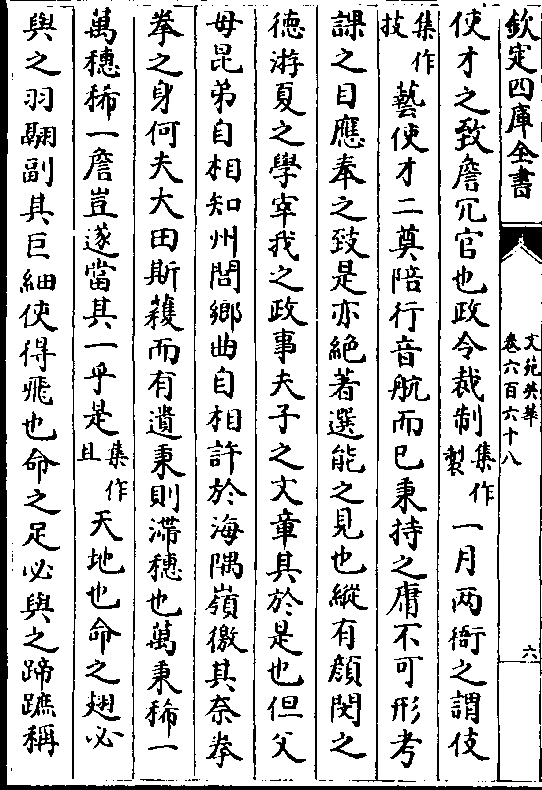 欽定四庫全書
文苑英華
卷六百六十八
六
使才之致詹冗官也政令裁制集作製一月兩衙之謂伎
集作技藝使才二奠陪行音航而已秉持之庸不可形考
課之目應奉之致是亦絕著選能之見也縱有顔閔之
德游夏之學宰我之政事夫子之文章具於是也但父
母昆弟自相知州閭鄉曲自相許於海隅嶺徼其奈拳
拳之身何夫大田斯穫而有遺秉則滯穗也萬秉稀一
萬穗稀一詹豈遂當其一乎是集作且天地也命之翅必
與之羽翮副其巨細使得飛也命之足必與之蹄蹠稱